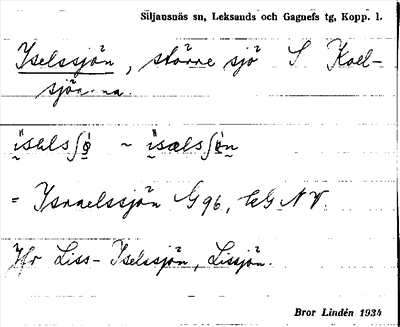 Siljansnäs sn, Leksands och Gagnefs tg, Kopp. l.
Iselssjön, större sjö S Koel-
sjön.na.
= Israelssjön G 96, kG NV.
Jfr Liss-Iselssjön, Lissjön.
Bror Lindén 1934